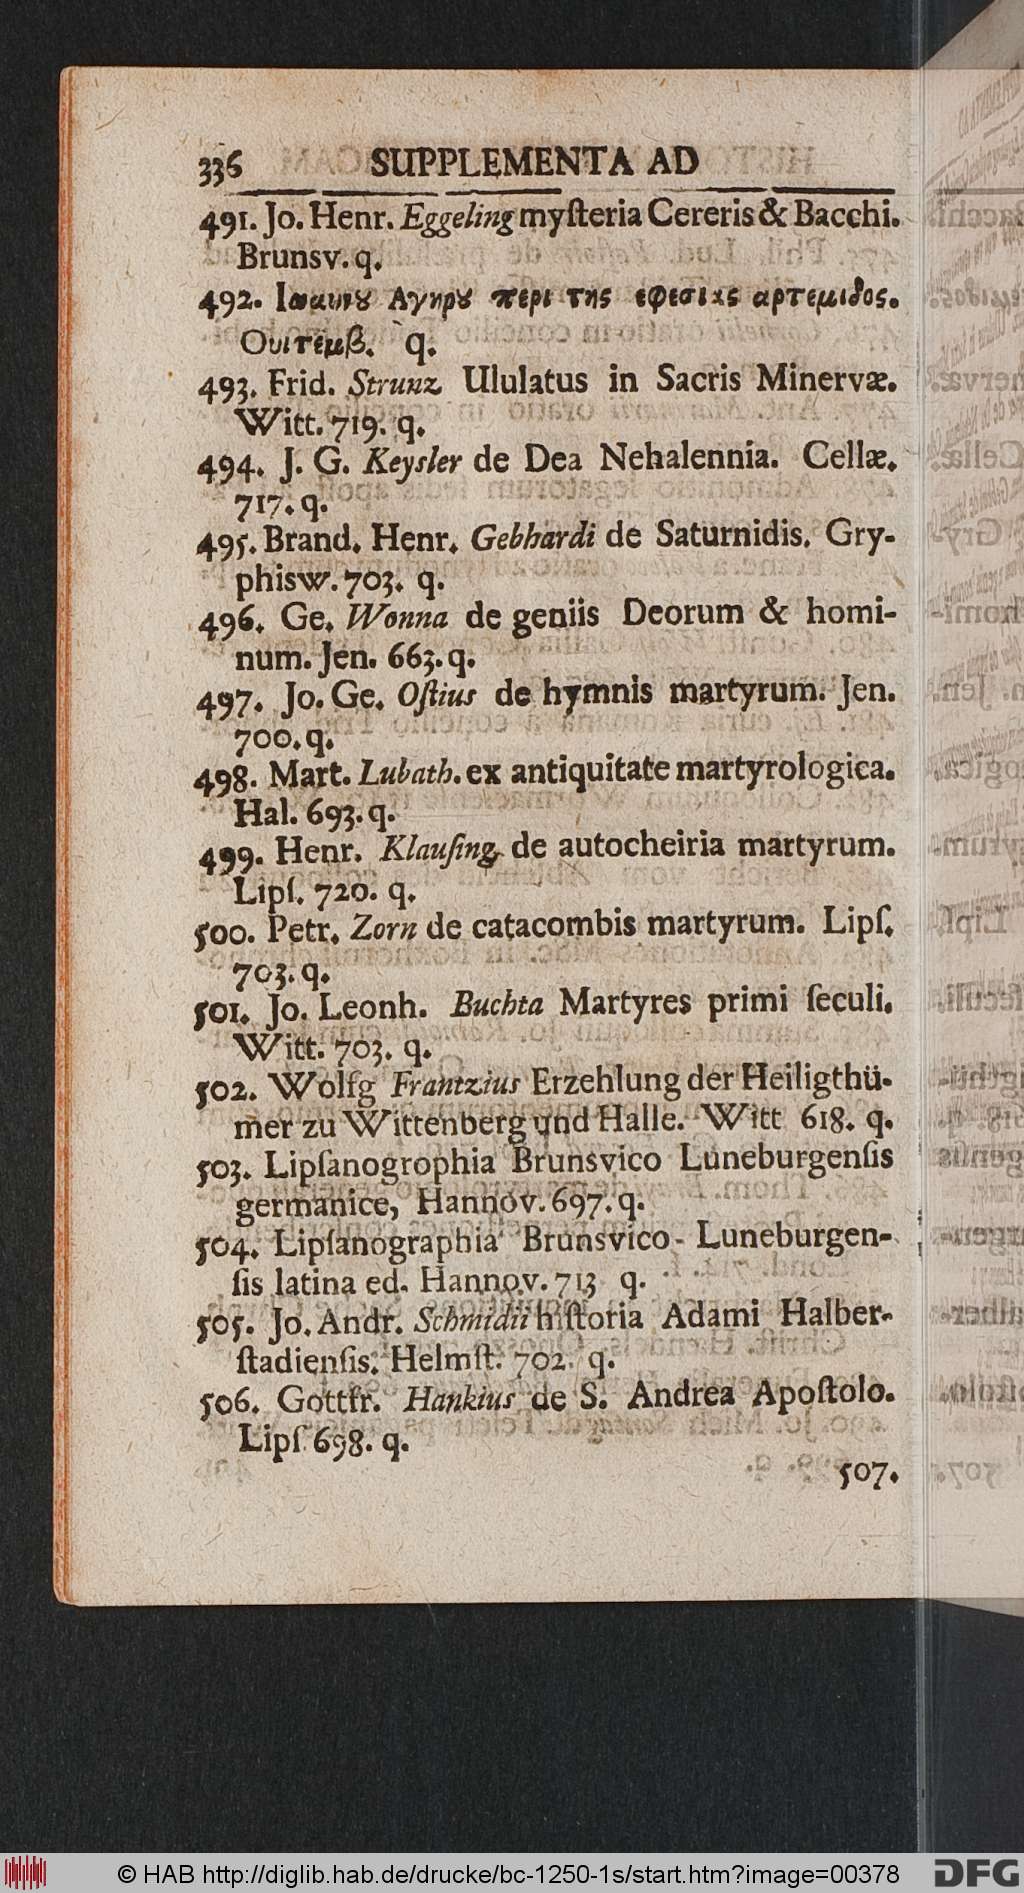 336 SUPPLEMENTA AD
491. Jo. Henr. Eggeling myſteria Cereris & Bacchi.
Brunsv. q.
492. Ιωαννȣ Αγηρȣ περι της εφεσιας αρτεμιδος.
Ουιτεμβ. q.
493. Frid. Strunz Ululatus in Sacris Minervæ.
Witt. 719. q.
494. J. G. Keysler de Dea Nehalennia. Cellæ.
717. q.
495. Brand. Henr. Gebhardi de Saturnidis. Gry-
phisw. 703. q.
496. Ge. Wonna de geniis Deorum & homi-
num. Jen. 663. q.
497. Jo. Ge. Oſtius de hymnis martyrum. Jen.
700. q.
498. Mart. Lubath. ex antiquitate martyrologica.
Hal. 693. q.
499. Henr. Klauſing de autocheiria martyrum.
Lipſ. 720. q.
500. Petr. Zorn de catacombis martyrum. Lipſ.
703. q.
501. Jo. Leonh. Buchta Martyres primi ſeculi.
Witt. 703. q.
502. Wolfg Frantzius Erzehlung der Heiligthü-
mer zu Wittenberg und Halle. Witt 618. q.
503. Lipſanogrophia Brunsvico Luneburgenſis
germanice, Hannov. 697. q.
504. Lipſanographia Brunsvico - Luneburgen-
ſis latina ed. Hannov. 713 q.
505. Jo. Andr. Schmidii hiſtoria Adami Halber-
ſtadienſis. Helmſt. 702. q.
506. Gottfr. Hankius de S. Andrea Apoſtolo.
Lipſ 698. q.
507.
© HAB http://diglib.hab.de/drucke/bc-1250-1s/start.htm?image=00378 DFG